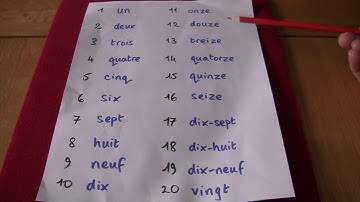 1 un
2 deux
3 trois
4 quatre
5 cinq
6 six
7 sept
8 huit
9 neuf
10 dix
11 onze
12 douze
13 treize
14 quatorze
15 quinze
16 seize
17 dix-sept
18 dix-huit
19 dix-neuf
20 vingt